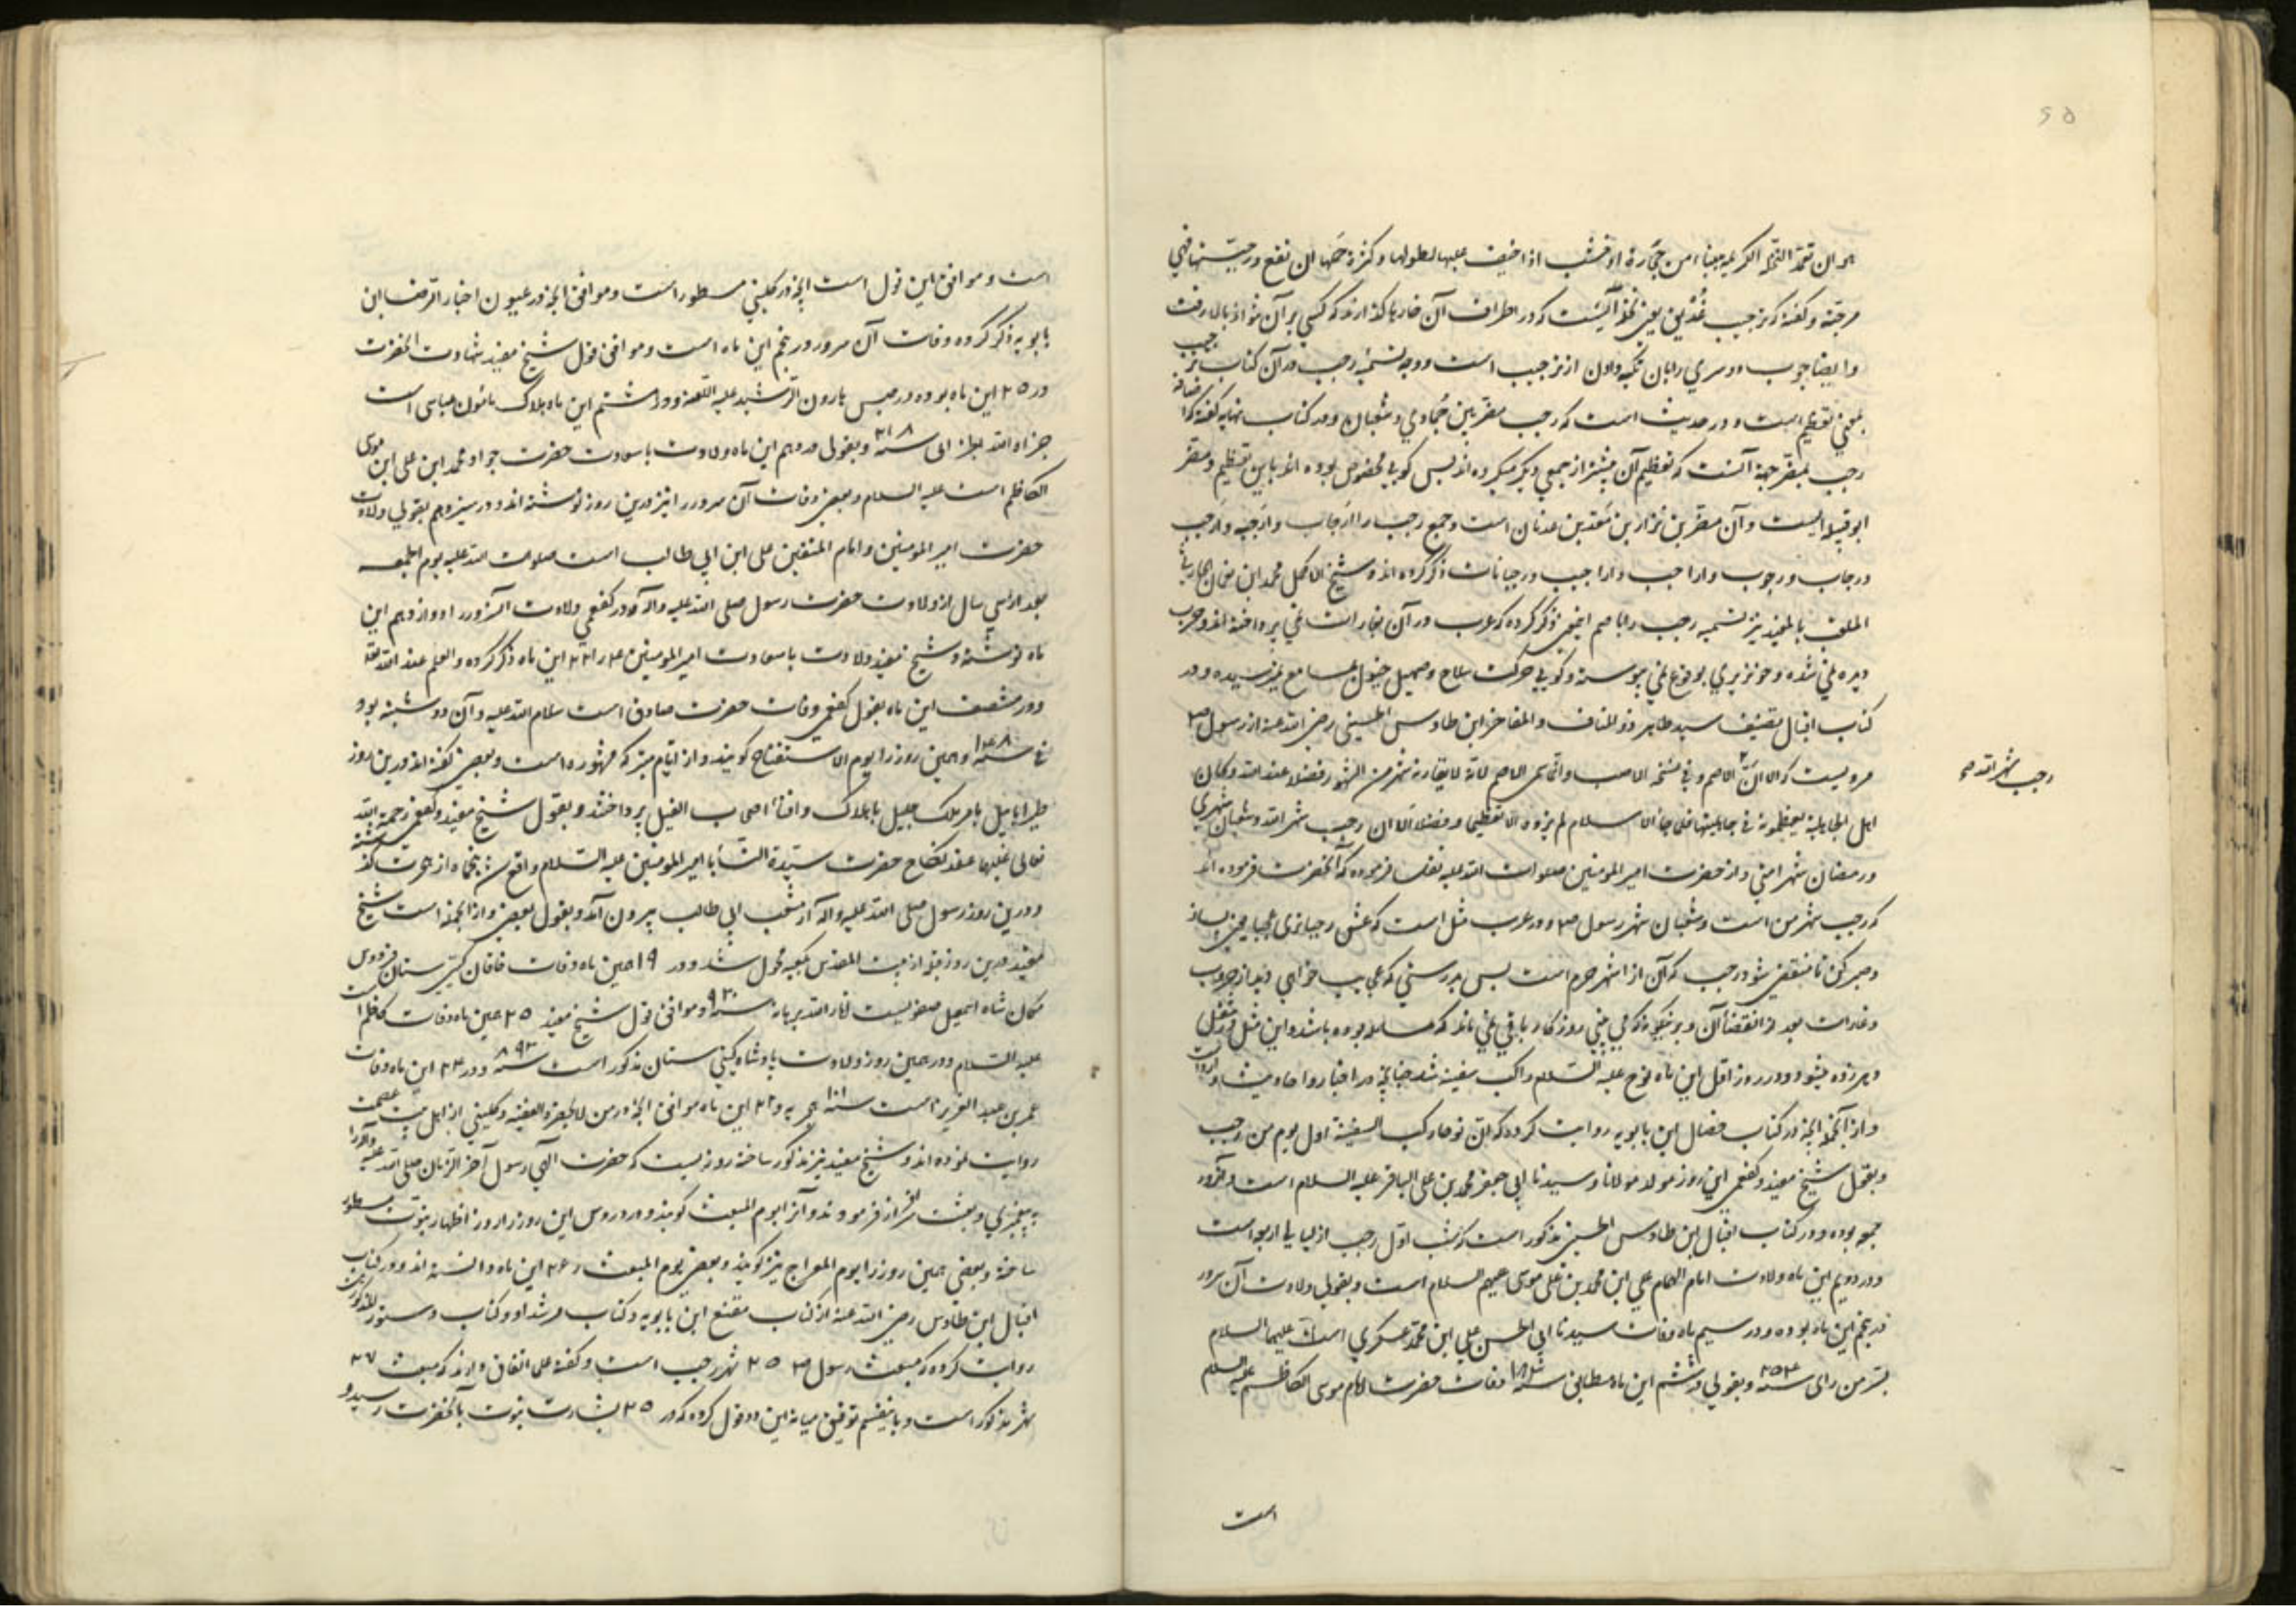 هو ان تعمد النخلة الكريمة ببناء من حجارة او خشب اذا خيف عليها لطولها وكثرة حملها ان تقع ورجبتها فهي
مرجبة و گفته که ترجیب عُذَيق یعنی نخله آنست که در اطراف آن خارها گذارند که کسی بر آن نتواند بالا رفت
وایضا چوب دو سری را بآن تکیه دادن از ترجیب است و وجه تسمیه رجب در آن کتاب ترجیب
بمعنی تعظیم است و در حدیث است که رجب مضر بین جمادی و شعبان و در کتاب نهایه گفته که اضافه
رجب بمضر جهة آنست که تعظیم آن بیشتر از جمعی دیگر میکرده اند پس گویی مخصوص بوده اند باین تعظیم و مضر
ابو قبیله ایست و آن مضر بن نزار بن معد بن عدنان است و جمع رجب را ارجاب و ارجبه و ارجب
و رجاب و رجوب و اراجب و اراجیب و رجبانات ذکر کرده اند و شیخ الاکمل محمد ابن
الملقب بالمفید نیز تسمیه رجب را باصم اینچنین ذکر کرده که عرب در آن بغارات نمی پرداخته اند و حرب
دیده نمی شده و خونریزی بوقوع نمی پیوسته و گویی حرکت سلاح و صهیل خیول بمسامع نمیرسیده و در
کتاب اقبال تصنیف سید طاهر ذو المناقب و المفاخر ابن طاوس الحسینی رضی الله عنه از رسول ص
مرویست که الا ان رجب شهر الله الاصم و فی نسخة الاصب وانما سمی الاصم لانه لا یقاربه شهر من الشهور فضلا عند الله وکان
اهل الجاهلیة یعظمونه فی جاهلیتها فلما جاء الاسلام لم یزده الا تعظیما وفضلا الا ان رجب شهر الله وشعبان شهری
ورمضان شهر امتی و از حضرت امیر المومنین صلوات الله علیه نقل فرموده که آنحضرت فرموده اند
که رجب شهر من است و شعبان شهر رسول ص و در عرب مثل است که عش رجبا تری عجبا یعنی بساز
و صبر کن تا منقضی شود رجب که آن از اشهر حرم است پس بدرستی که عجایب خواهی دید از حروب
و غارات بعد از انقضاء آن
و هرزده میشود و در روز اول این ماه نوح علیه السلام راکب سفینه شد چنانچه در اخبار و احادیث وارد است
و از آنجمله آنچه در کتاب خصال ابن بابویه روایت کرده که ان نوحا رکب السفینة اول یوم من رجب
و بقول شیخ مفید و کفعمی این روز مولد مولانا و سیدنا ابی جعفر محمد بن علی الباقر علیه السلام است و آنروز
جمعه بوده و در کتاب اقبال ابن طاوس الحسینی مذکور است که شب اول رجب از لیالی اربعه است
و در دویم این ماه ولادت امام الهمام علی ابن محمد بن علی موسی علیهم السلام است و بقولی ولادت آن سرور
در پنجم این ماه بوده و در سیم ماه وفات سیدنا ابی الحسن علی ابن محمد عسکری است علیهما السلام
بسر من رای سنه ۲۵۴ و بقولی در ششم این ماه مطابق سنه ۱۸۳ وفات حضرت امام موسی الکاظم علیه السلام
است
رجب شهر الله صح
۶۵
است و موافق این قول است آنچه در کلینی مسطور است و موافق آنچه در عیون اخبار الرضا ابن
بابویه ذکر کرده وفات آن سرور در پنجم این ماه است و موافق قول شیخ مفید شهادت آنحضرت
در ۲۵ این ماه بوده در حبس هارون الرشید علیه اللعنه و در هشتم این ماه هلاک مأمون عباسی است
جزاه الله سنه ۲۱۸ و بقولی در دهم این ماه ولادت با سعادت حضرت جواد محمد ابن علی ابن موسی
الکاظم است علیه السلام و بعضی وفات آن سرور را نیز درین روز نوشته اند و در سیزدهم بقولی ولادت
حضرت امیر المومنین و امام المتقین علی ابن ابی طالب است صلوات الله علیه یوم الجمعه
بعد از سی سال از ولادت حضرت رسول صلی الله علیه و آله و در کفعمی ولادت آنسرور را دوازدهم این
ماه نوشته و شیخ مفید ولادت با سعادت امیر المومنین ع را ۲۳ این ماه ذکر کرده و العلم عند الله تعالی
و در منتصف این ماه بقول کفعمی وفات حضرت صادق است سلام الله علیه و آن دوشنبه بود
فی سنه ۱۴۸ و همین روز را یوم الاستفتاح گویند و از ایام متبرکه مشهوره است و بعضی گفته اند درین روز
طیر ابابیل بامر ملک جلیل باهلاک و افناء اصحاب الفیل پرداختند و بقول شیخ مفید و کفعمی رحمة الله
تعالی علیهما عقد نکاح حضرت سیدة النسا با امیر المومنین علیه السلام واقع شد پنجماه از هجرت گذشته
و درین روز رسول صلی الله علیه و آله از شعب ابی طالب بیرون آمد و بقول بعضی و از آنجمله است شیخ
مفید درین روز قبله از بیت المقدس بکعبه محول شد و در ۱۹ همین ماه وفات خاقان گیتی ستان فردوس
مکان شاه اسمعیل صفویست انار الله برهانه سنه ۹۳۰ و موافق قول شیخ مفید ۲۵ همین ماه وفات کاظم است
علیه السلام و در همین روز ولادت پادشاه گیتی ستان مذکور است سنه ۸۹۲ و در ۲۴ این ماه وفات
عمر بن عبد العزیز است سنه ۱۰۱ هجریه و ۲۷ این ماه موافق آنچه در من لا یحضره الفقیه و کلینی از اهل بیت عصمت
روایت نموده اند و شیخ مفید نیز مذکور ساخته روزیست که حضرت الهی رسول آخر الزمان صلی الله علیه و آله را
به پیغمبری و بعثت سرافراز فرمودند و آنرا یوم المبعث گویند و در دروس این روز را روز اظهار نبوت مسطور
ساخته و بعضی همین روز را یوم المعراج نیز گویند و بعضی یوم المبعث را ۲۶ این ماه دانسته اند و در کتاب
اقبال ابن طاوس رضی الله عنه از کتاب مقنع ابن بابویه و کتاب مرشد او و کتاب دستور المذکورین
روایت کرده که مبعث رسول ص ۲۵ شهر رجب است و گفته علی اتفاق دارند که مبعث ۲۷
شهر مذکور است و باینقسم توفیق میانه این دو قول کرده که در ۲۵ بشارت نبوت بآنحضرت رسیده و